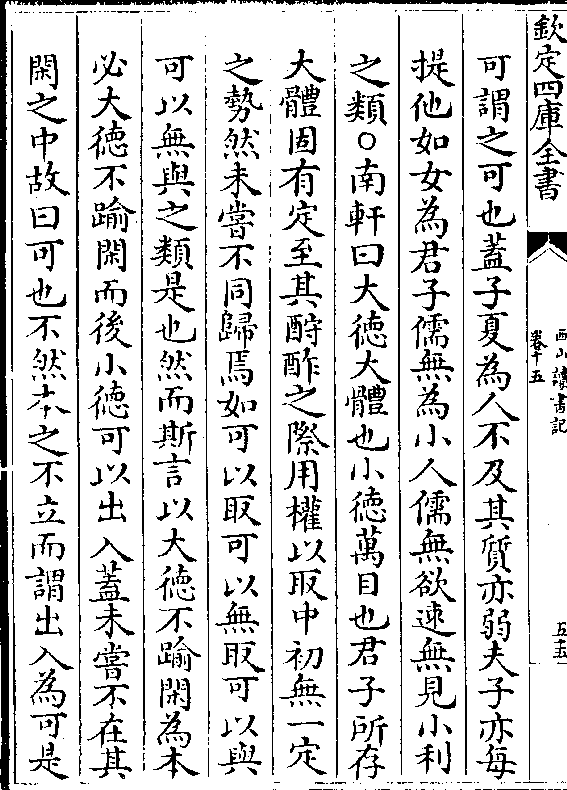 欽定四庫全書
西山讀書記
卷十五
五十五
可謂之可也蓋子夏為人不及其質亦弱夫子亦每
提他如女為君子儒無為小人儒無欲速無見小利
之類○南軒曰大徳大體也小徳萬目也君子所存
大體固有定至其酧酢之際用權以取中初無一定
之勢然未嘗不同歸焉如可以取可以無取可以與
可以無與之類是也然而斯言以大徳不踰閑為本
必大徳不踰閑而後小徳可以出入蓋未嘗不在其
閑之中故曰可也不然本之不立而謂出入為可是